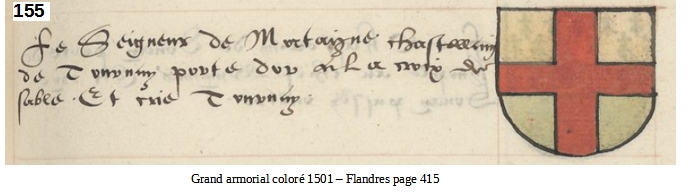 155
Le Seigneur de Mortaigne chastellain
de Tournay porte dor a La croix de
sable . Et crie Tournay .
Grand armorial coloré 1501 – Flandres page 415